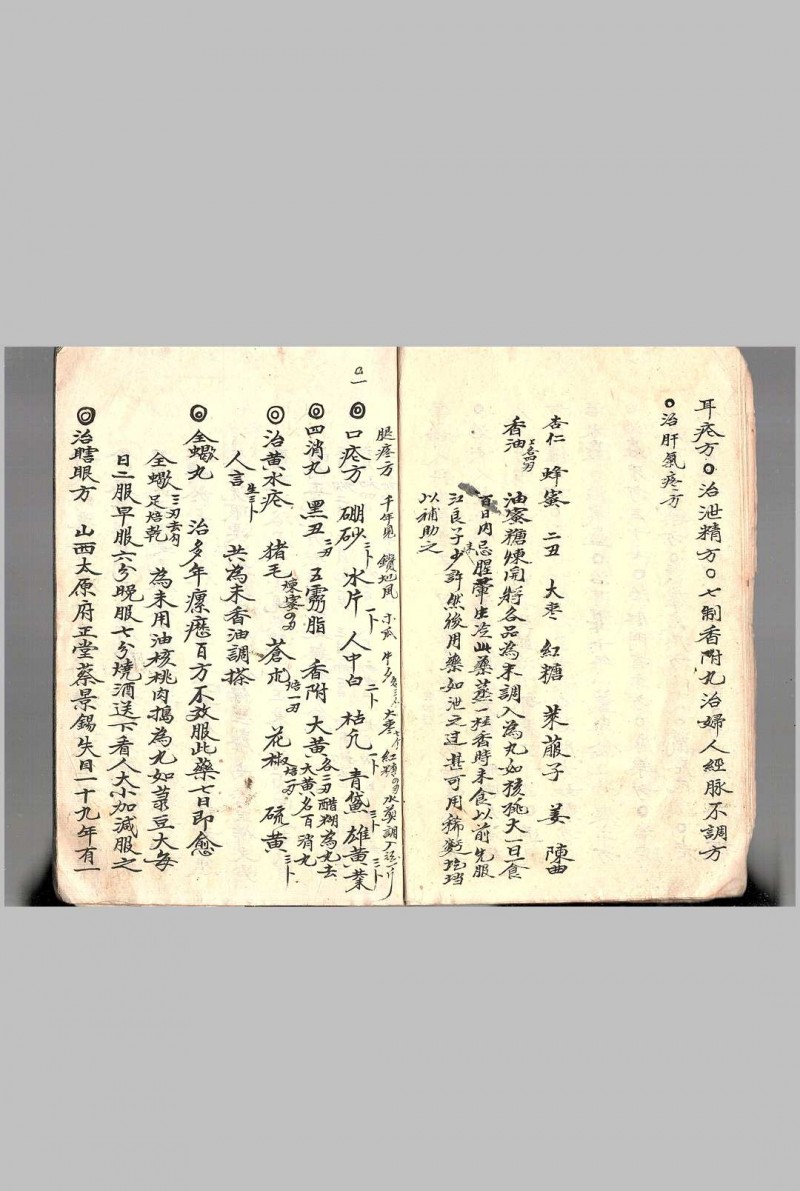 耳疼方○治泄精方○七制香附丸治婦人經脉不調方
○治肝氣疼方
杏仁 蜂蜜 二丑 大枣 紅糖 萊菔子 姜 陳曲
香油 油蜜糖煉開將各品為末調入為丸如核桃大一旦食
百日內忌腥葷生冷此藥蒸一柱香時未食以前先服
江良子少許然後用藥如泄之过甚可用稀
以補助之
腿疼方 千年見 鑽地風 木瓜 牛夕 大枣 紅糖
◎口疮方 硼砂 水片 人中白 枯凡 青黛 雄黄
◎四消丸 黑丑 五灵脂 香附 大黄各三刃醋糊為丸去
大黄名百消丸
◎治黄水疮 猪毛 蒼朮 花椒 硫黄
人言 共為末香油調搽
◎全蠍丸 治多年瘰癧百方不效服此藥七日即愈
全蠍三刃去勾足焙乾 為末用油核桃肉搗為丸如菉豆大每
日二服早服六分晚服七分燒酒送下看人大小加減服之
◎治瞎眼方 山西太原府正堂蔡景錫失目一十九年有一